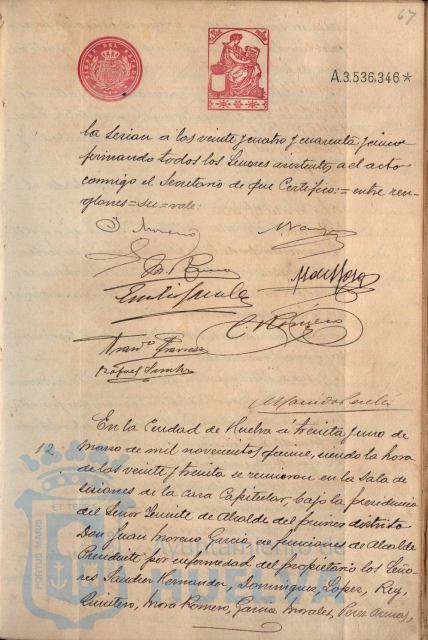 67
TIMBRE DEL ESTADO
A.3.536.346*
la sesion a las veinte y cuatro y cuarenta y cinco
firmando todos los Señores asistentes al acto
conmigo el Secretario de que Certifico:=entre ren-
glones=su=vale:
J. Moreno
M. de Mora
Emilio
C. Romero
Rafael Sanchez
En la Ciudad de Huelva á treinta y uno de
12 Marzo de mil novecientos quince, siendo la hora
de las veinte y treinta se reunieron en la Sala de
sesiones de la Casa Capitular, bajo la presidencia
del Señor Teniente de Alcalde del primer distrito
Don Juan Moreno García en funciones de Alcalde
Presidente por enfermedad del propietario los Seño-
res Sanchez Hernandez, Dominguez, Lopez, Rey,
Quintero, Mora Romero, Garcia Morales, Perez
PORTUS MARIS ET TERRAE CUSTODIA
Ayuntamiento de
HUELVA